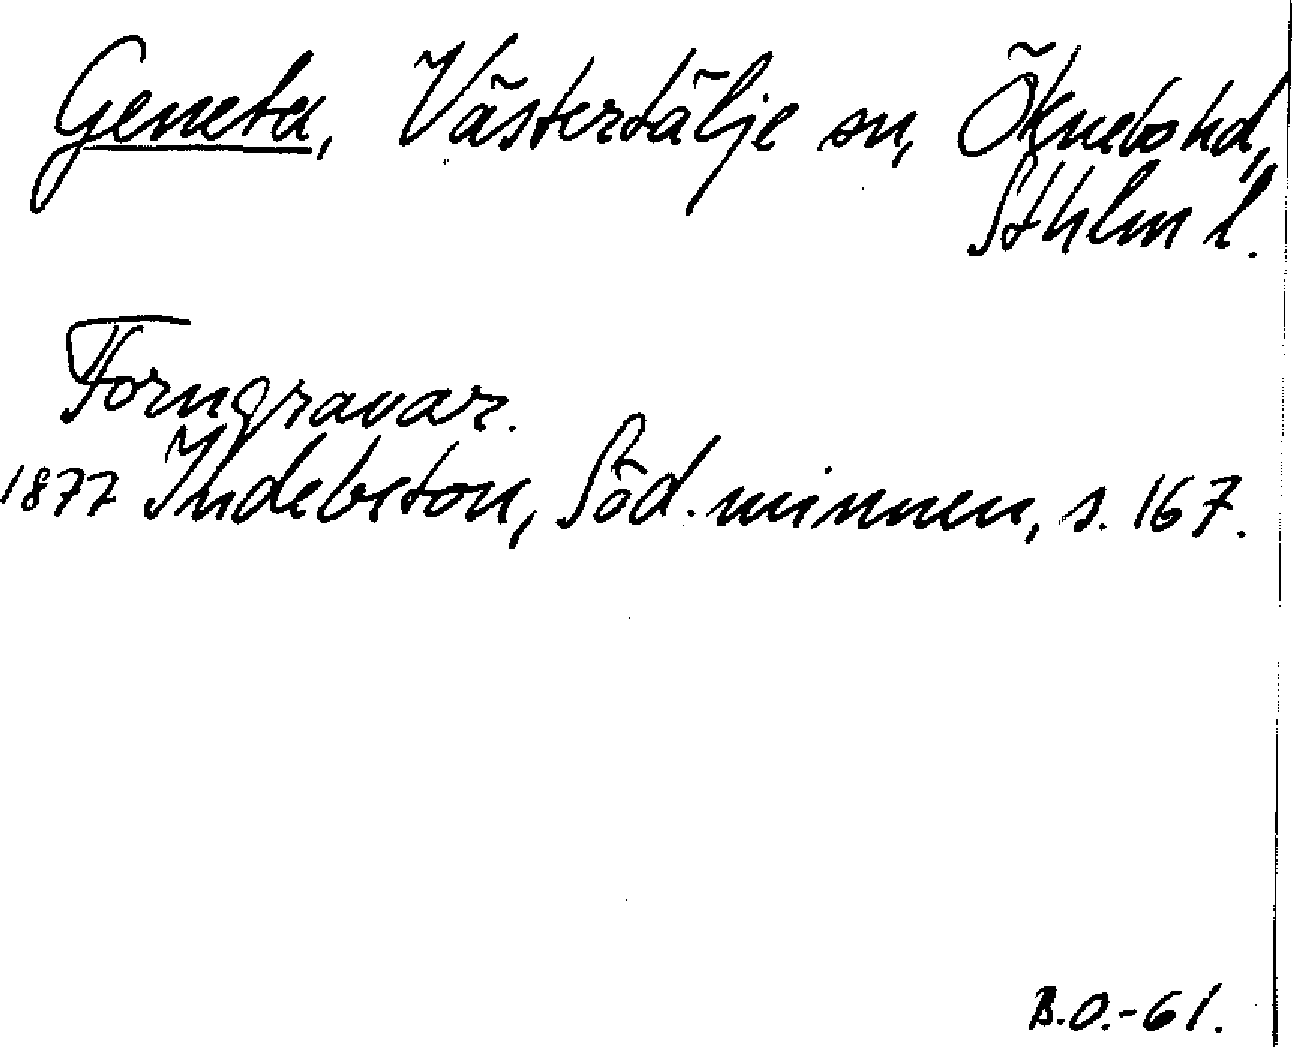 Geneta, Västertälje sn, Öknebo hd,
Sthlm l.
Forngravar.
1877 Indebetou, Söd. minnen, s. 167.
B.O.-61.